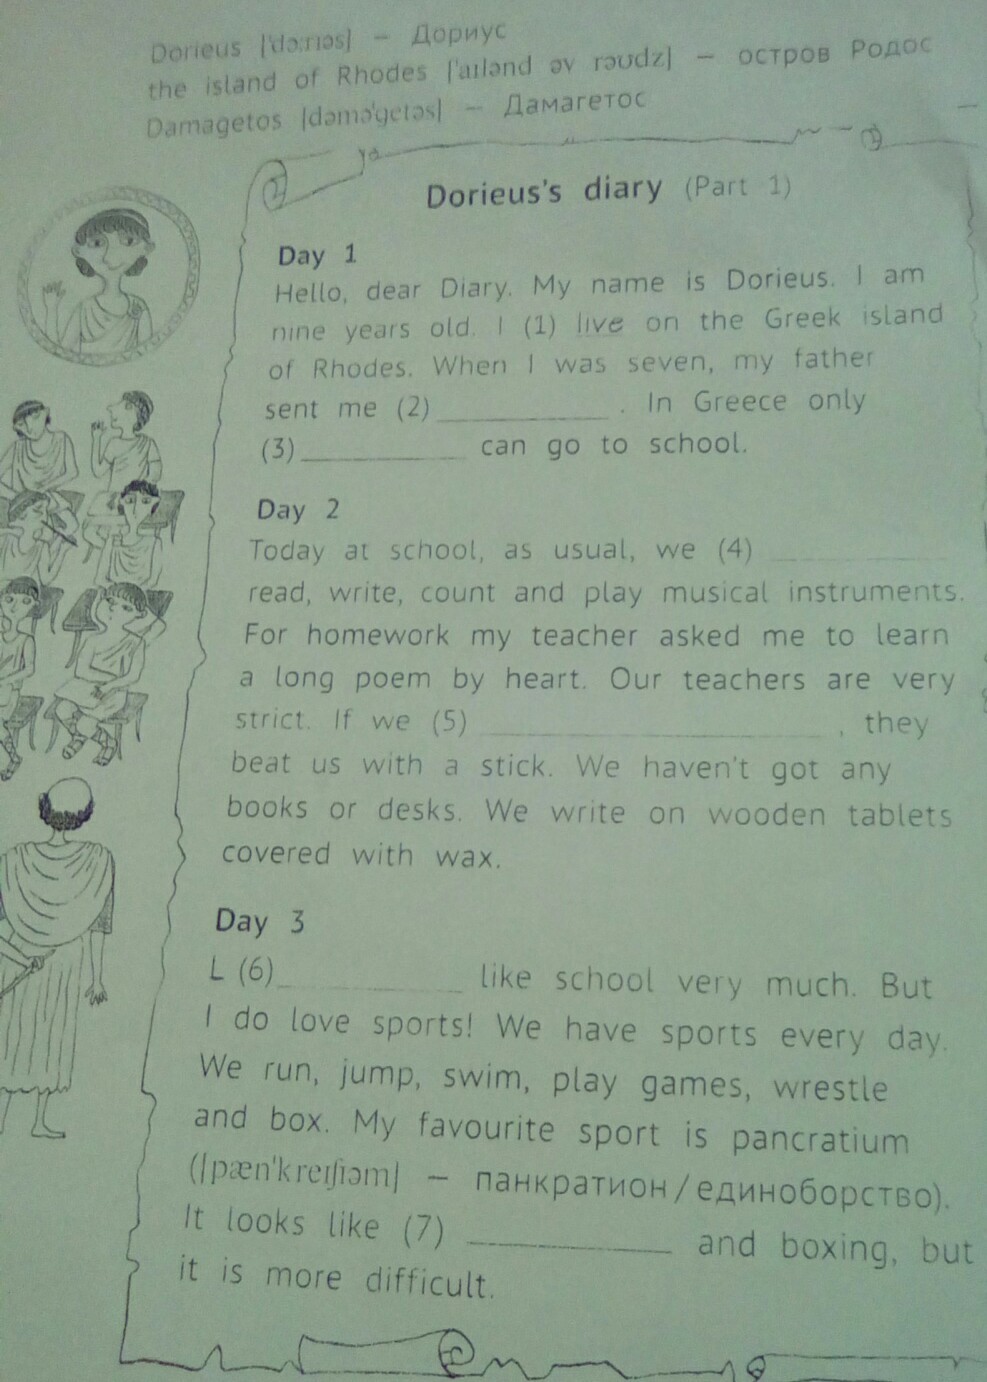 Dorieus |ˈdɔːrɪəs| – Дориус
the island of Rhodes |ˈaɪlənd əv rəʊdz| – остров Родос
Damagetos |dəməˈgetəs| – Дамагетос
Dorieus's diary (Part 1)
Day 1
Hello, dear Diary. My name is Dorieus. I am
nine years old. I (1) live on the Greek island
of Rhodes. When I was seven, my father
sent me (2)____________. In Greece only
(3)____________ can go to school.
Day 2
Today at school, as usual, we (4) ____________
read, write, count and play musical instruments.
For homework my teacher asked me to learn
a long poem by heart. Our teachers are very
strict. If we (5) ________________________, they
beat us with a stick. We haven't got any
books or desks. We write on wooden tablets
covered with wax.
Day 3
L (6)____________ like school very much. But
I do love sports! We have sports every day.
We run, jump, swim, play games, wrestle
and box. My favourite sport is pancratium
(|pænˈkreɪʃɪəm| – панкратион/единоборство).
It looks like (7) ____________ and boxing, but
it is more difficult.